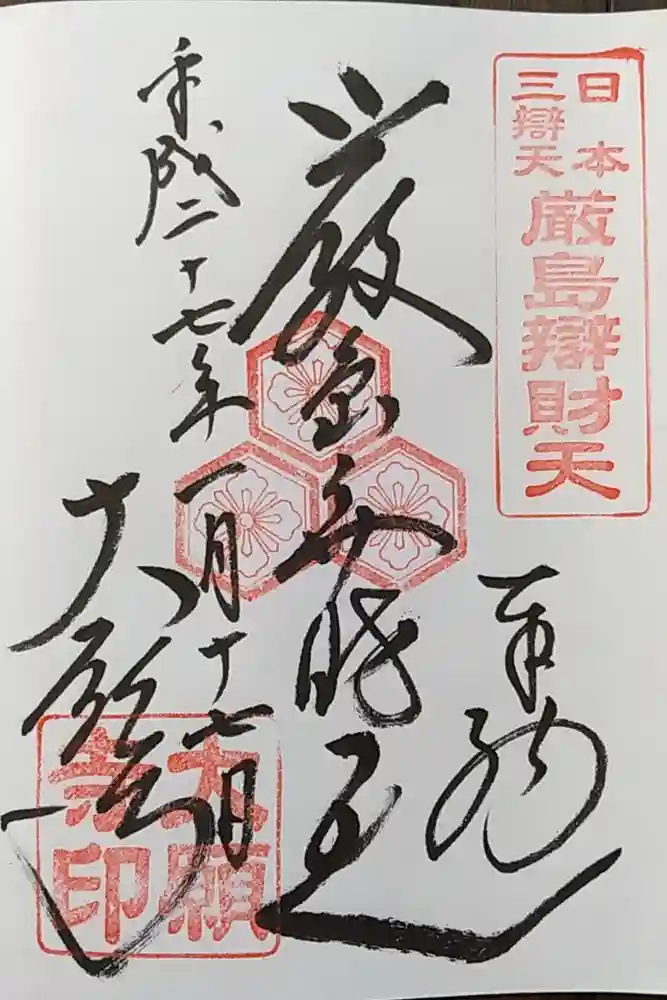 日本
三辯天
厳島辯財天
奉
厳島弁財天
平成二十七年一月十七日
大願寺
大願
寺印